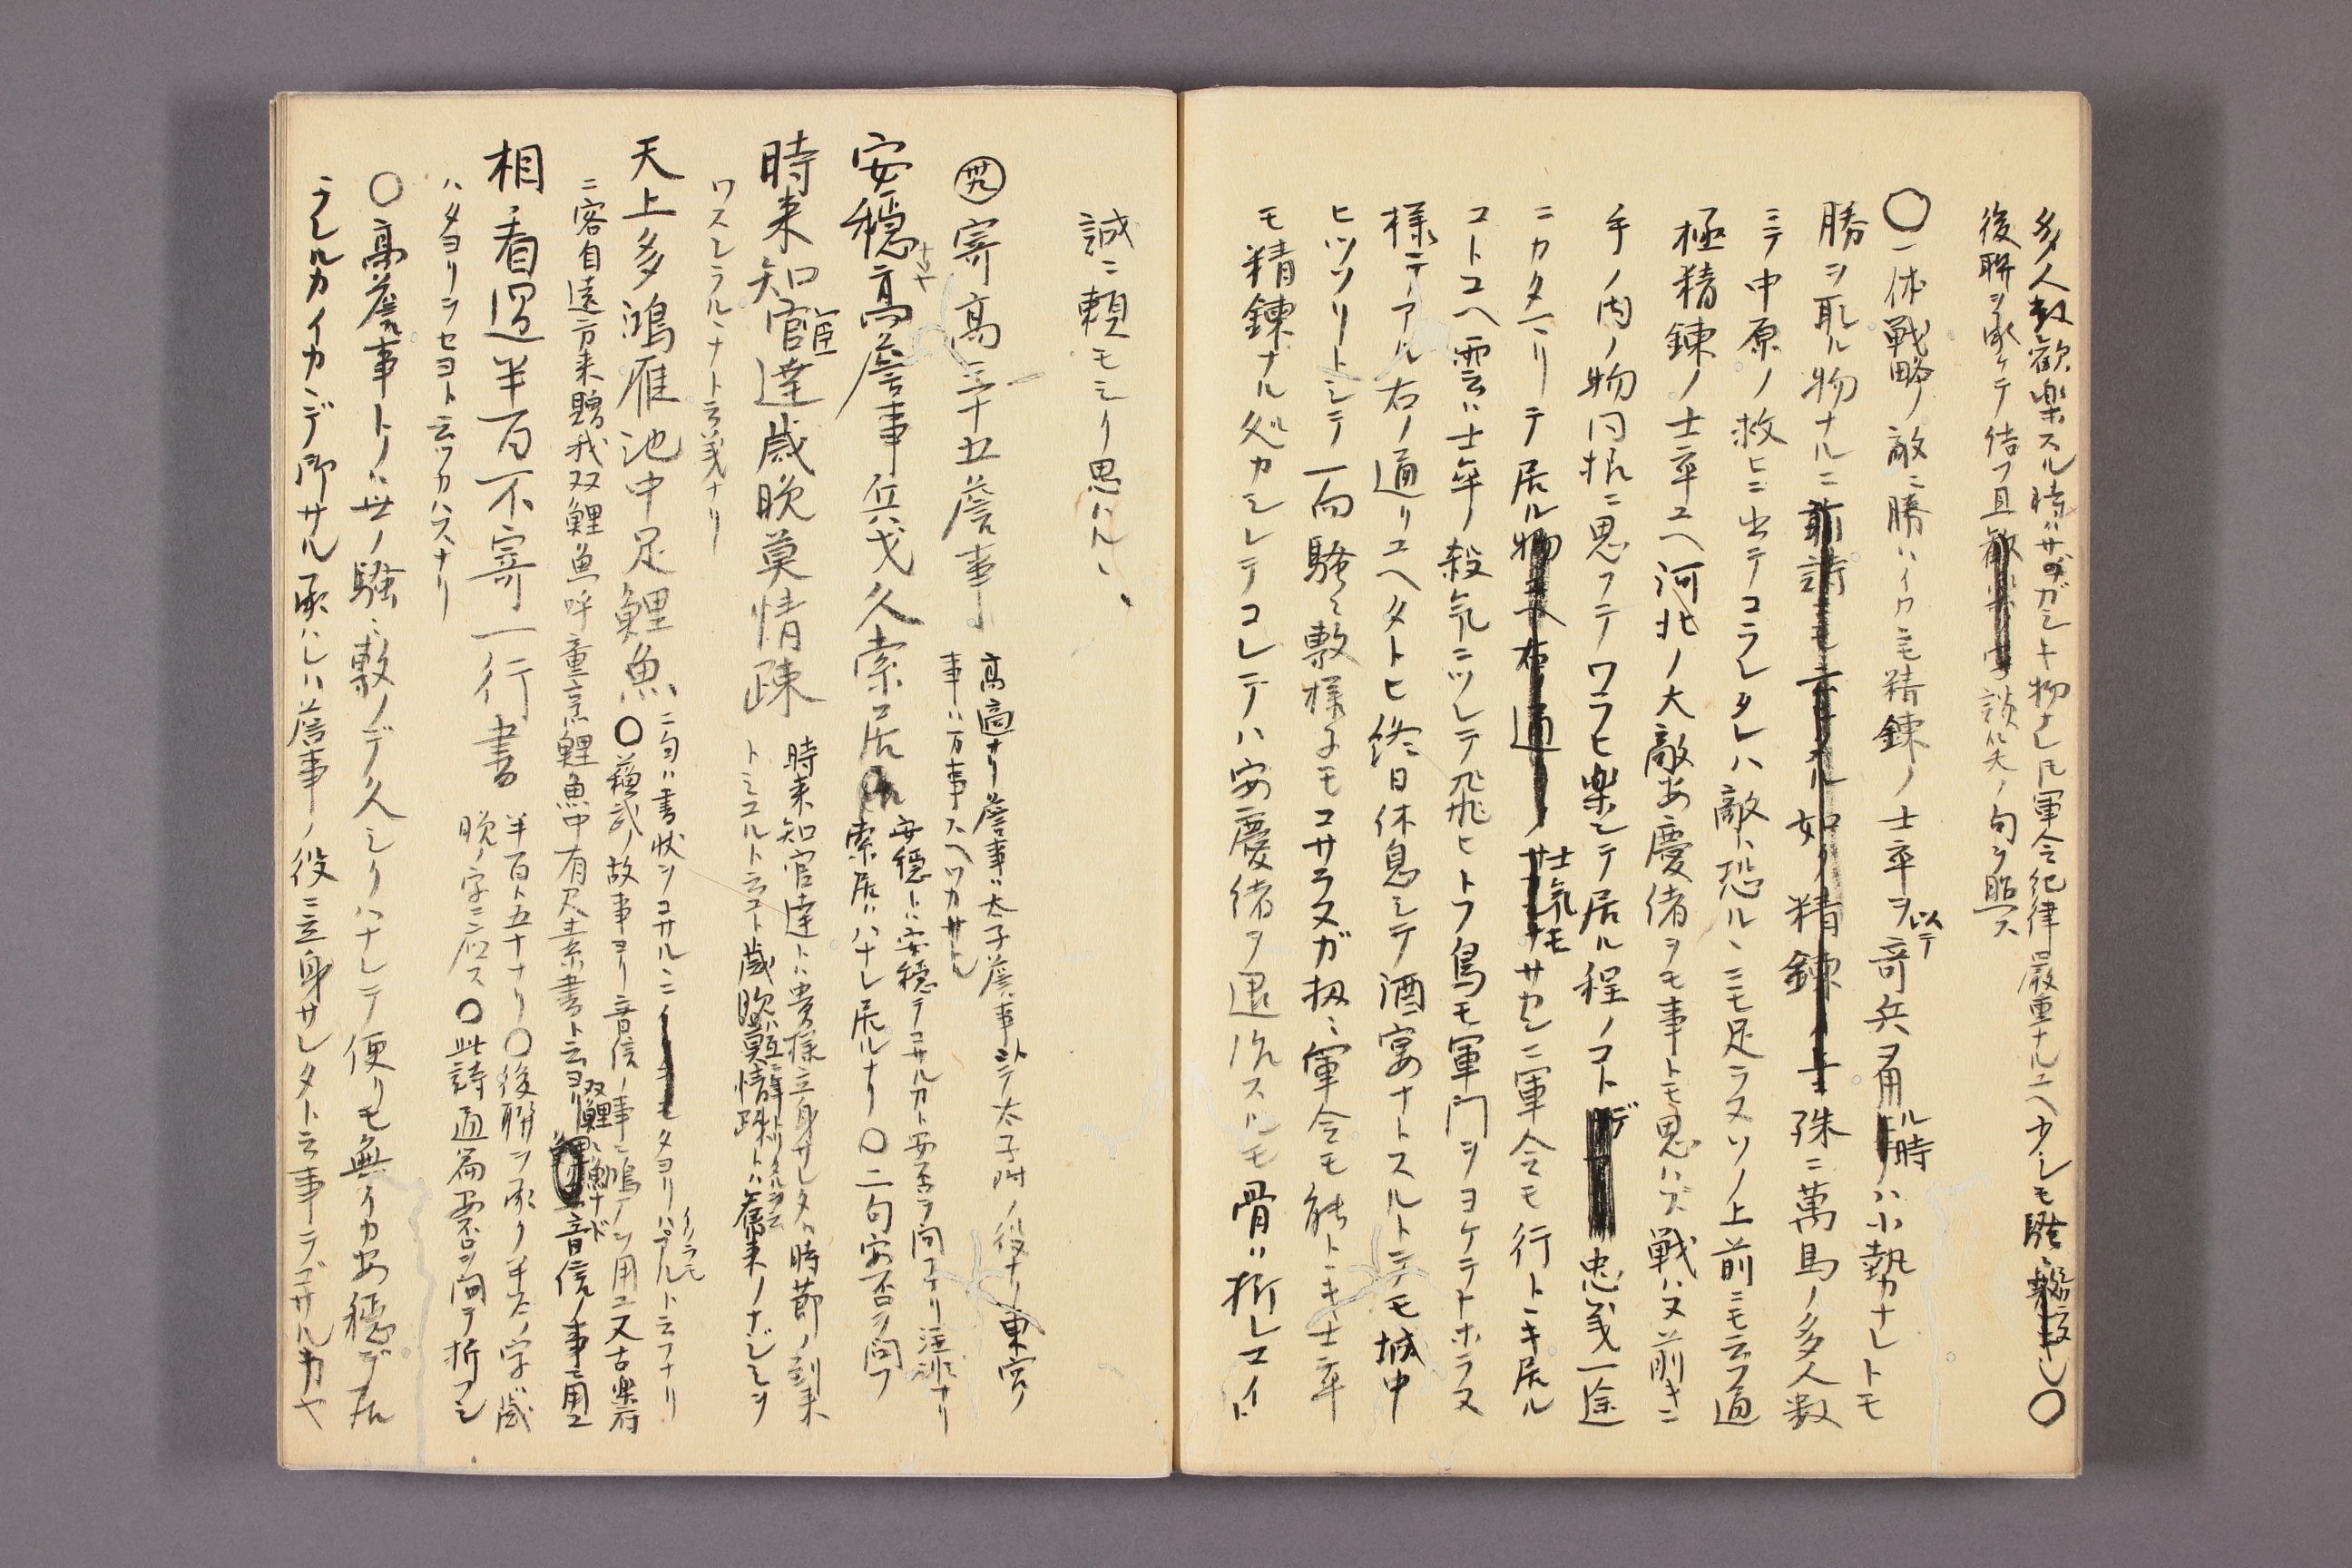 多人数歓楽スル時ハサワガシキ物ナレ𪜈軍令紀律厳重ナルユヘ少シモ騒〻敷キ〇
後聯ヲ承ケテ結フ且談笑ノ句ヲ照ス
〇一体戦略ノ敵ニ勝ハイカニモ精錬ノ士卒ヲ以テ奇兵ヲ用ル時ハ小勢ナレトモ
勝ヲ取ル物ナルニ如ク精錬ノ殊ニ萬馬ノ多人数
ニテ中原ノ救ヒニ出テコラレタレハ敵ハ恐ルヽニモ足ラヌソノ上前ニモ云フ通
極精錬ノ士卒ユヘ河北ノ大敵安慶緒ヲモ事トモ思ハズ戦ハヌ前キニ
手ノ内ノ物同振ニ思フテワラヒ楽シテ居ル程ノコトデ忠義一途
ニカタマリテ居ル士気モサカンニ軍令モ行トヽキ居ル
コトユヘ雲ハ士卒ノ殺気ニツレテ飛ヒトフ鳥モ軍門ヲヨケテトホラヌ
様デアル右ノ通リユヘタトヒ終日休息シテ酒宴ナトスルトテモ城中
ヒツソリトシテ一向騒〻敷様子モコサラヌガ扨〻軍令モ能トヽキ士卒
モ精錬ナル処カシレテコレデハ安慶緒ヲ退治スルモ骨ハ折レマイト
誠ニ頼モシク思ハルヽ
㊴寄高三十五詹事 高適ナリ詹事ハ太子詹事トテ太子附ノ役ナリ東宮ノ
事ハ万事スヘツカサトル
安穏高詹事兵戈久索居 安穏トハ安穏テコサルカト安否ヲ問フナリ注非ナリ
索居ハハナレ居ルナリ〇二句安否ヲ問フ
時来知官達歳晩莫情疎 時来知官達トハ貴様立身サレタハ時節ノ到来
トミユルト云コト歳晩莫情疎トハ旧来ノナジミヲ
ワスレラルヽナト云義ナリ
天上多鴻雁池中足鯉魚 二句ハ書状ヲコサルニイクラモタヨリハアルト云フナリ
〇蘇武ノ故事ヨリ音信ノ事ニ鴻ノヲ用ユ又古楽府
ニ客自遠方来贈我双鯉魚呼童烹鯉魚中有尺素書ト云ヨリ双鯉鯉魚ナド音信ノ事ニ用ユ
相看過半百不寄一行書 半百ト五十ナリ〇後聯ヲ承ク半百ノ字歳
晩ノ字ニ応ス〇此詩通篇安否ヲ問テ折フシ
ハタヨリヲセヨト云ツカハスナリ
〇高詹事トノハ世ノ騒〻敷ノデ久シクハナレテ便リモ無イカ安穏デ居
ラレルカイカヾデ御サル承ハレハ詹事ノ役ニ立身サレタト云事デゴサルカヤ